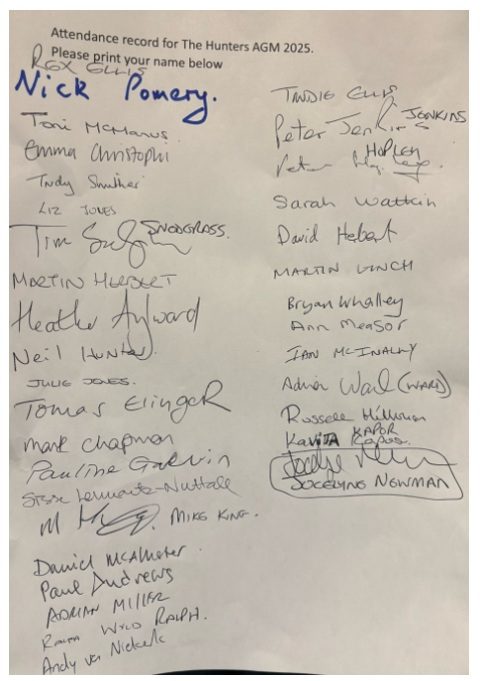 Attendance record for The Hunters AGM 2025.
Please print your name below
REX ELLIS
Nick Pomery.
Toni McManus.
Emma Christophi
Trudy
LIZ JONES
Tim SNODGRASS.
MARTIN HERBERT
Heather Aylward
Neil Hunter.
JULIE JONES.
Tomas Elinger
Mark Chapman
Pauline Galvin
Lennartz-Nuttall
MIKE KING.
Daniel McAlister
Paul Andrews
ADRIAN MILLER
WYLD RALPH.
Andy van Niekerk
TINDIE ELLIS
Peter Jenkins JENKINS
Peter HOPLEY
Sarah Watkin
David Hebert
MARTIN LYNCH
Bryan Whalley
Ann Measor
IAN MCINALLY
Adrian Ward (WARD)
Russell Hillman
KAVITA KAPOR
JOCELYNE NEWMAN